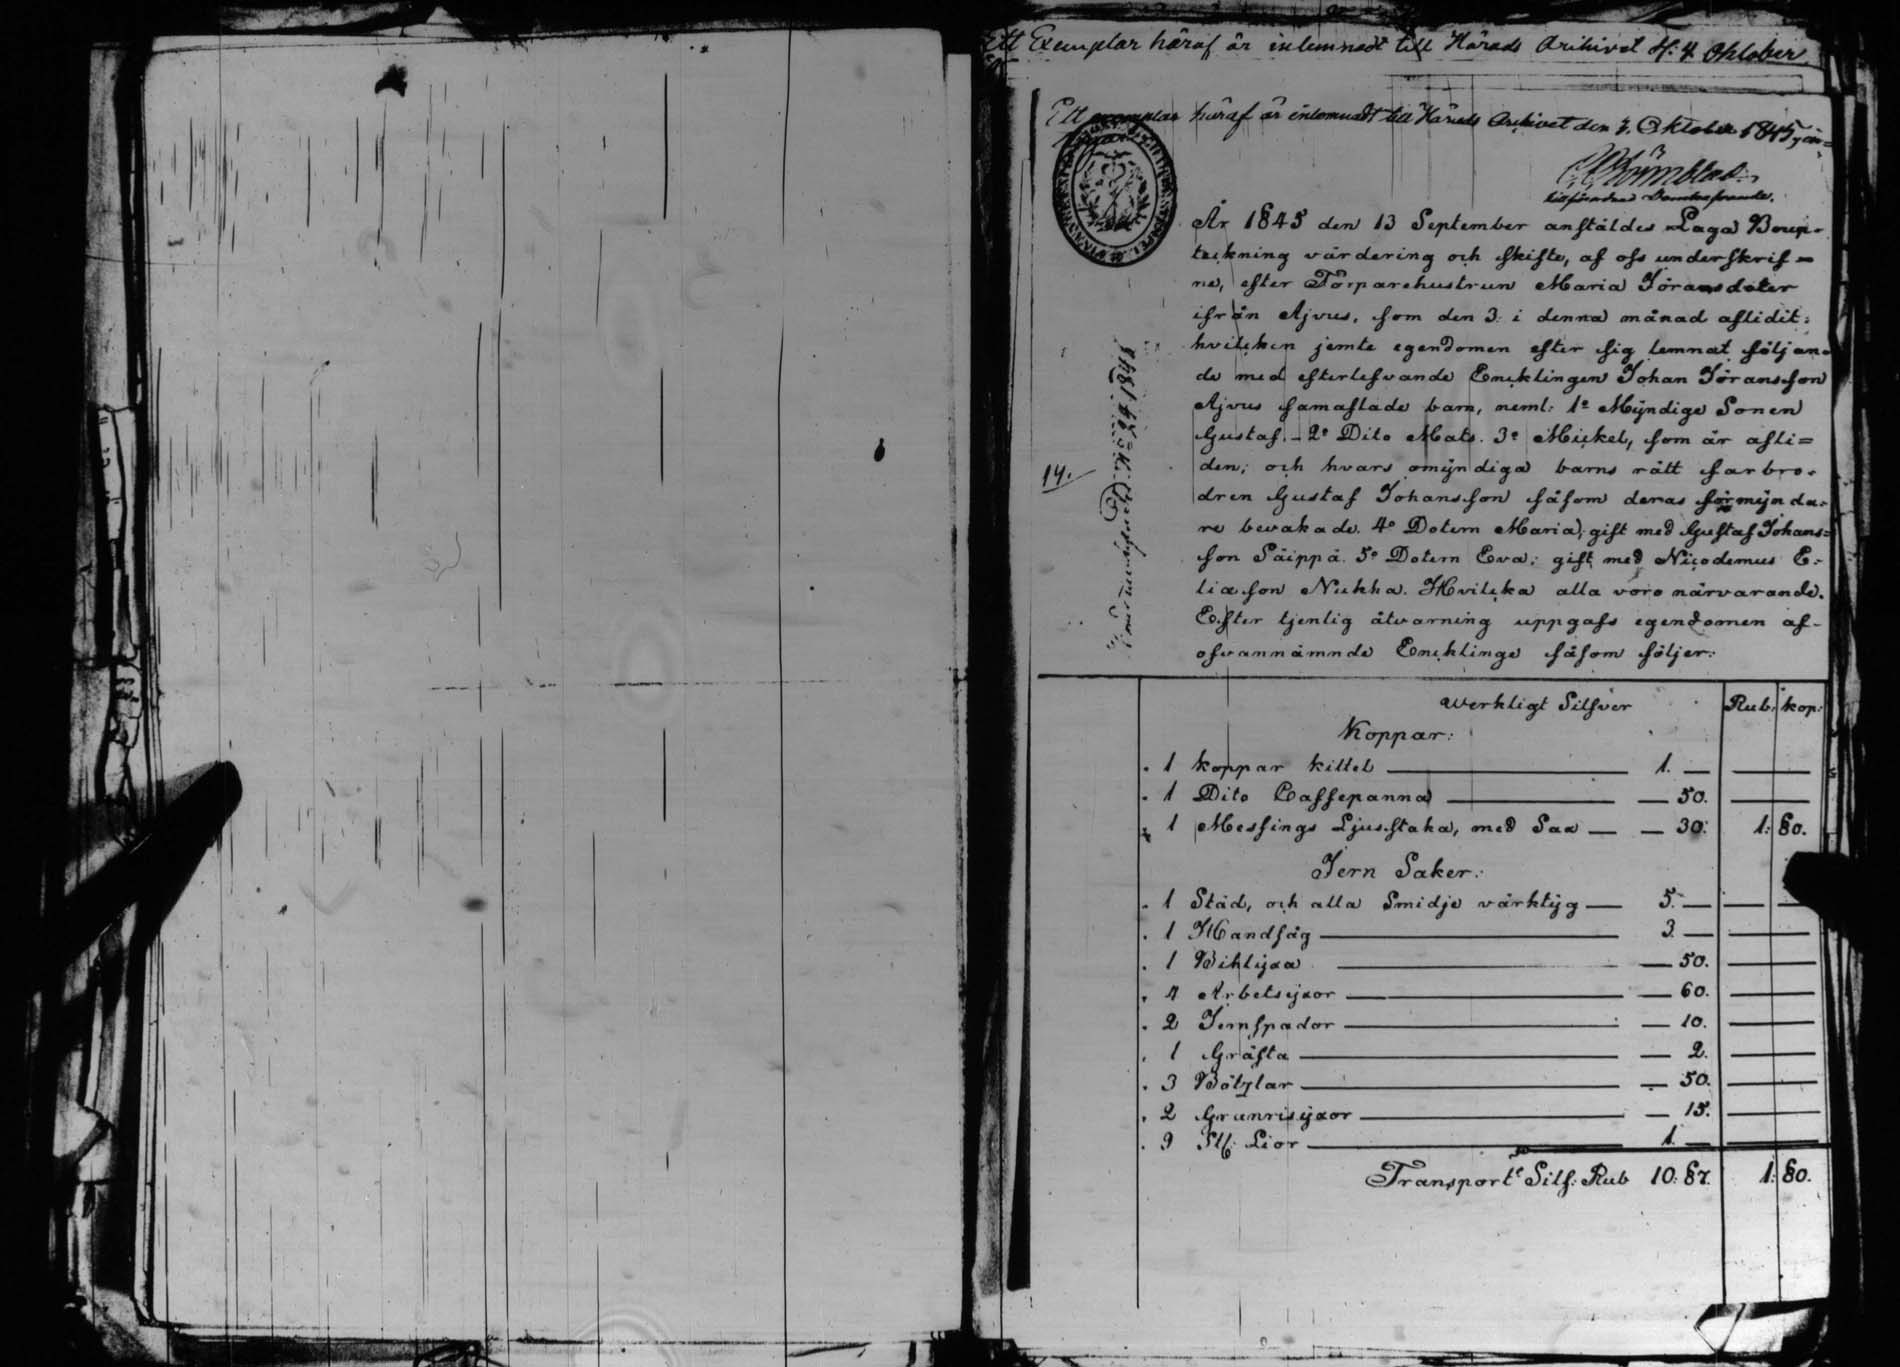 Ett Exemplar häraf är inlemnadt till Härads Arkivet d: 4 Oktober
Ett exemplar häraf är inlemnadt till Härads Arkivet den 4. Oktober 1845,
År 1845 den 13 September anstäldes Laga Boup-
teckning värdering och skifte, af oss underskrif=
ne, efter Torparehustrun Maria Jöransdoter
ifrån Ajvus, som den 3: i denna månad aflidit:
hvilcken jemte egendomen efter sig lemnat följan-
de med efterlefvande Encklingen Johan Jöransson
Ajvus samaflade barn, neml: 1º Myndige Sonen
Gustaf. - 2º Dito Mats. 3º Mickel, som är afli=
den; och hvars omyndiga barns rätt farbro-
dren Gustaf Johansson såsom deras förmynda-
re bevakade. 4º Dotern Maria; gift med Gustaf Johans=
son Säippä. 5º Dotern Eva; gift med Nicodemus E-
liasson Nukha. Hvilcka alla voro närvarande.
Efter tjenlig åtvarning uppgafs egendomen af-
ofvannämnde Encklinge såsom följer:
14.
Werkligt Silfver Rub: kop:
Koppar:
1 koppar kittel 1. —
1 Dito Caffepanna — 50.
1 Messings Ljusstaka, med Sax — 30: 1: 80.
Jern Saker:
1 Städ, och alla Smidje värktyg 5. —
1 Handsåg 3. —
1 Bihlyxa — 50.
4 Arbetsyxor — 60.
2 Jernspador — 10.
1 Gräfta — 2.
3 — 50.
2 Granrisyxor — 15.
9 St: Lior 1. —
Transport Silf: Rub 10: 87. 1: 80.